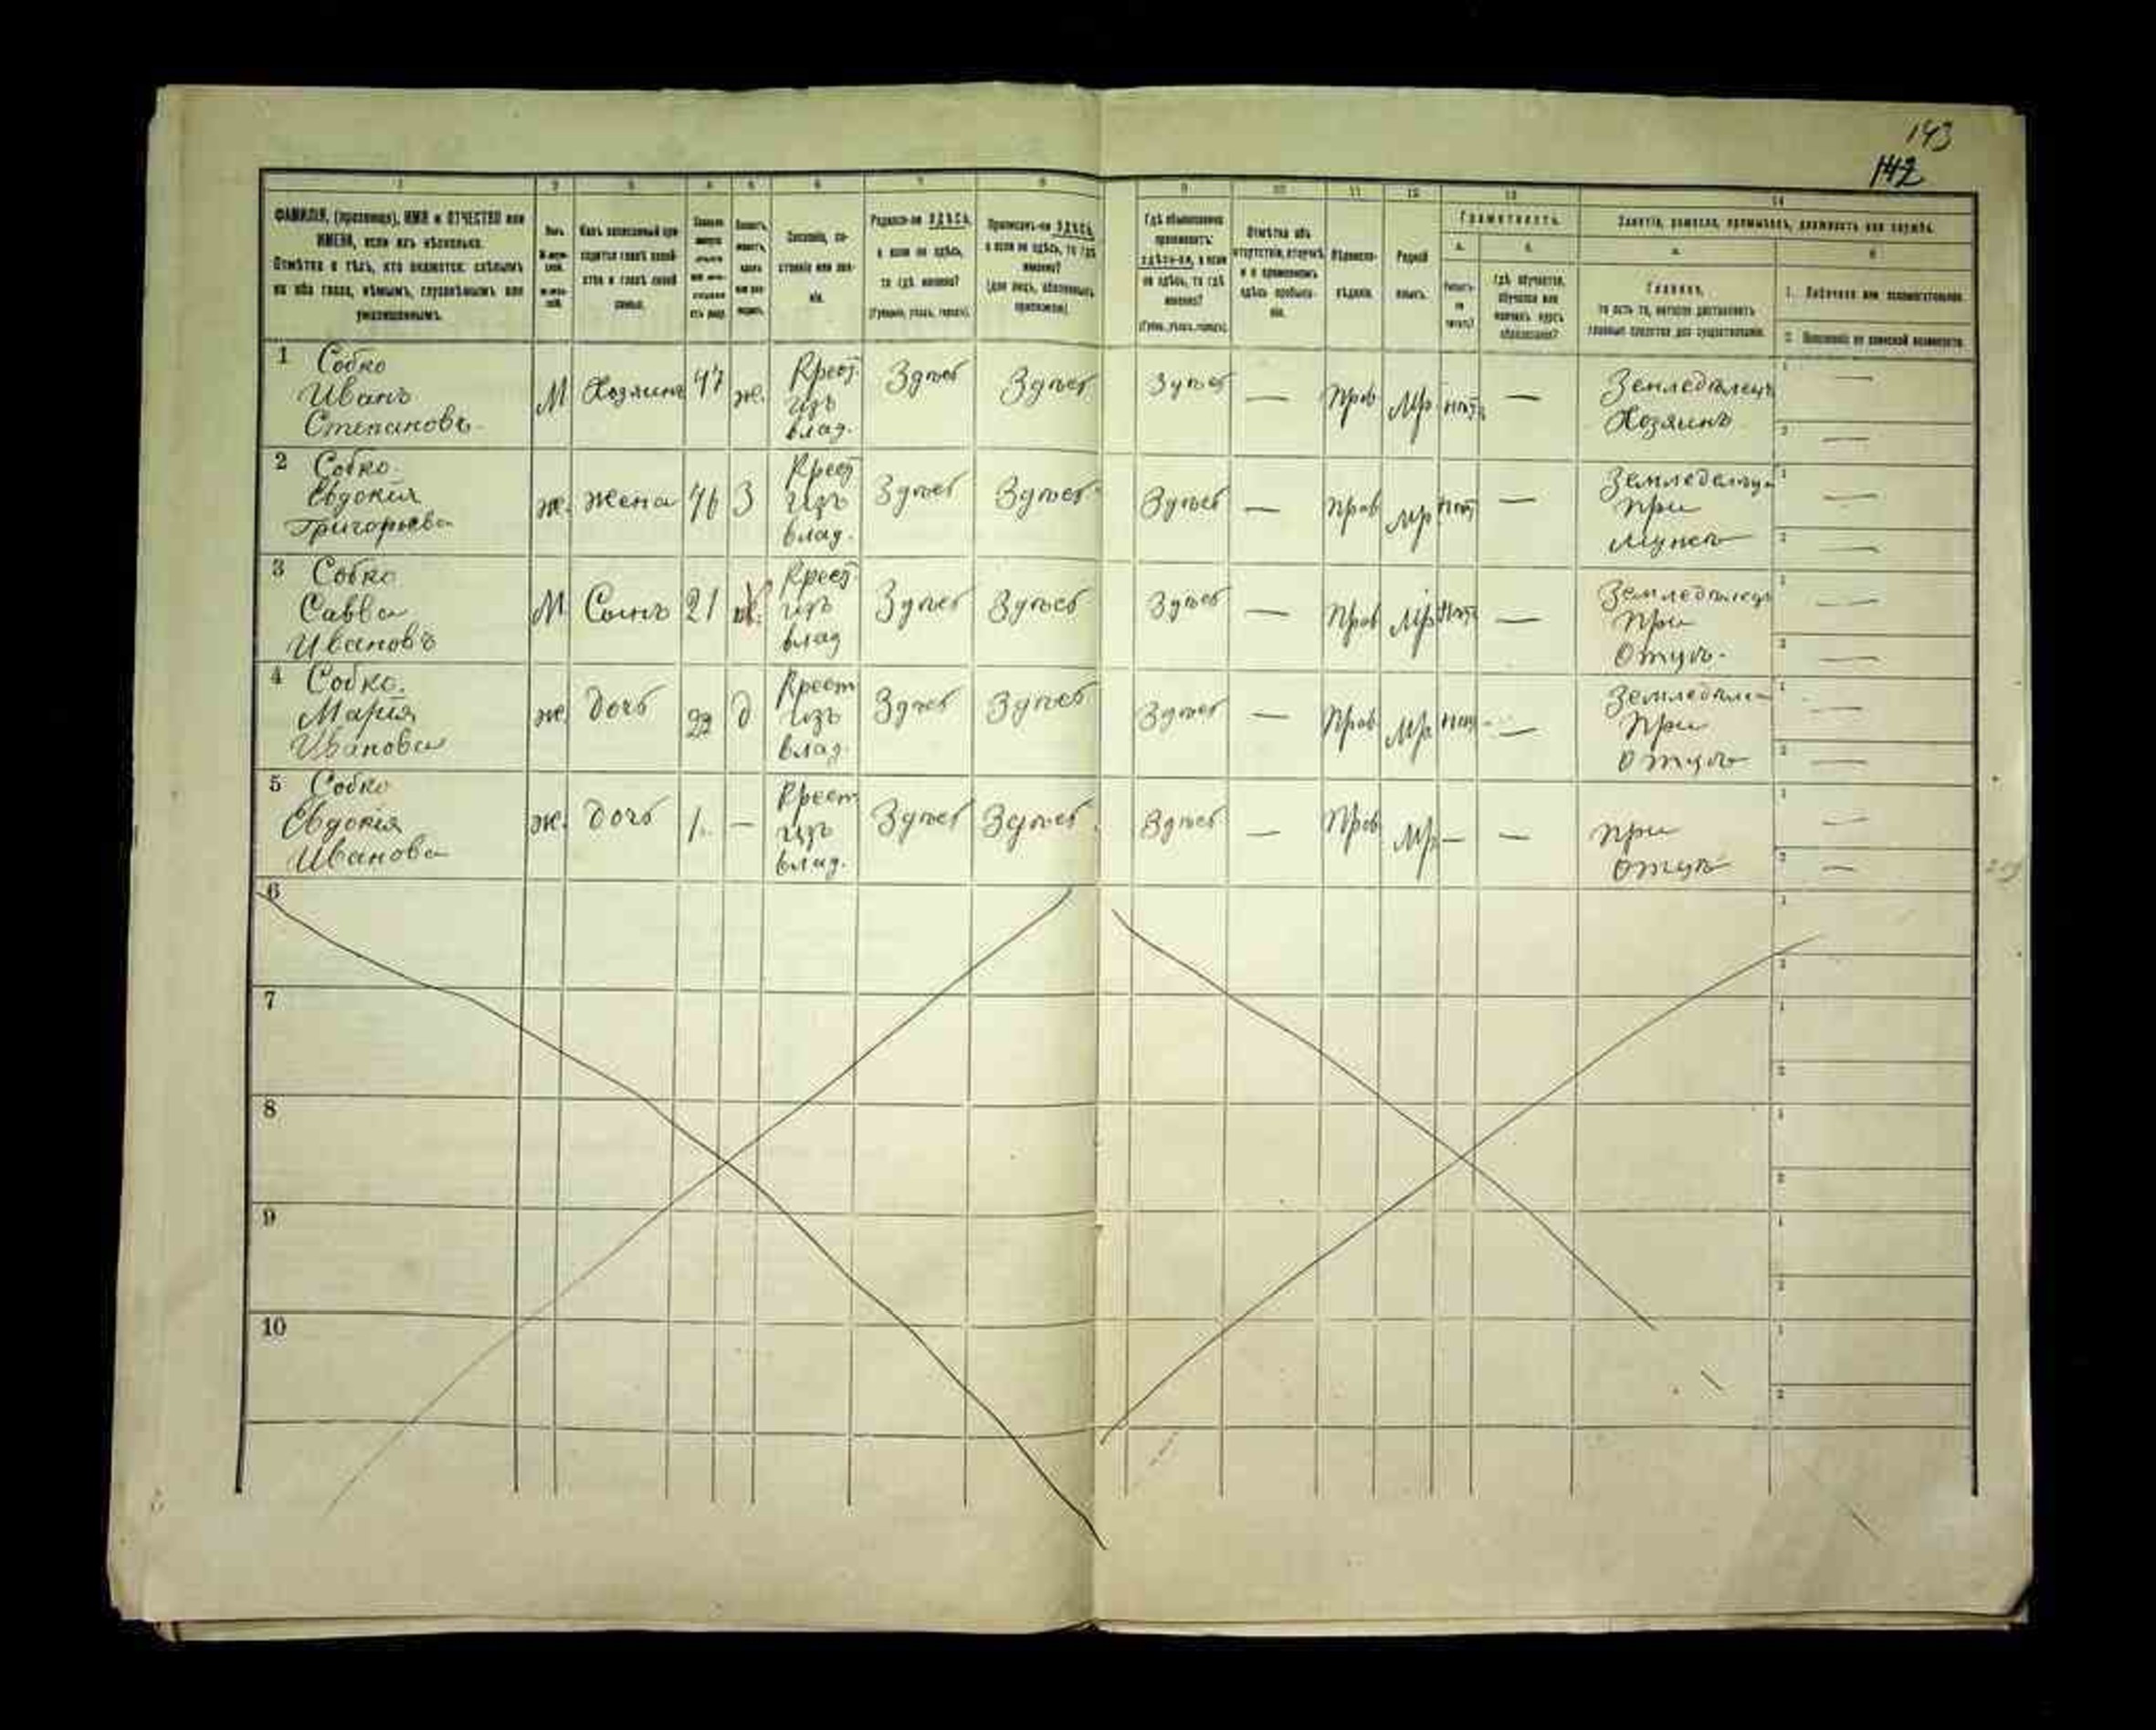 193
142
1 2 3 4 5 6 7 8 9 10 11 12 13 14
ФАМИЛІЯ, (прозвище), ИМЯ и ОТЧЕСТВО или
ИМЕНА, если ихъ нѣсколько.
Отмѣтка о тѣхъ, кто окажется: слѣпымъ
на оба глаза, нѣмымъ, глухонѣмымъ или
умалишеннымъ.
Сословіе, со-
стояніе или зва-
ніе.
Родился-ли ЗДѢСЬ,
а если не здѣсь,
то гдѣ именно?
(Губернія, уѣздъ, городъ).
Приписанъ-ли ЗДѢСЬ,
а если не здѣсь, то гдѣ
именно?
(для лицъ, обязанныхъ
припиской)
Гдѣ обыкновенно
проживаетъ:
здѣсь-ли, а если
не здѣсь, то гдѣ
именно?
(Губ., уѣздъ, городъ).
Отмѣтка объ
отсутствіи, отлучкѣ
и о временномъ
здѣсь пребыва-
ніи.
Вѣроиспо-
вѣданіе.
Родной
языкъ.
Грамотность.
а. б.
Умѣетъ-
ли
читать?
Гдѣ обучается,
обучался или
кончилъ курсъ
образованія?
Занятіе, ремесло, промыселъ, должность или служба.
а. б.
Главное,
то есть то, которое доставляетъ
главныя средства для существованія.
1. Побочное или вспомогательное.
2. Положеніе по воинской повинности.
1 Собко
Иванъ
Степановъ
М Хозяинъ 47 ж. Крест.
изъ
влад.
Здѣсь Здѣсь Здѣсь — Прав Мр нѣт —
Земледѣлецъ
Хозяинъ
1 —
2 —
2 Собко
Евдокія
Григорьева
ж. жена 46 З Крест
изъ
влад.
Здѣсь Здѣсь Здѣсь — Прав Мр нѣт —
при
мужѣ
1 —
2 —
3 Собко
Савва
Ивановъ
М Сынъ 21 Крест
изъ
влад
Здѣсь Здѣсь Здѣсь — Прав Мр нѣт —
Земледѣлецъ
При
Отцѣ.
1 —
2 —
4 Собко.
Марія
Иванова
ж. дочь 22 д Крест
изъ
влад.
Здѣсь Здѣсь Здѣсь — Прав Мр нѣт —
При
отцѣ
1 —
2 —
5 Собко
Евдокія
Иванова
ж. дочь 1. — Крест
изъ
влад.
Здѣсь Здѣсь Здѣсь — Прав Мр — —
при
отцѣ
1 —
2 —
6
1
2
7
1
2
8
1
2
9
1
2
10
1
2